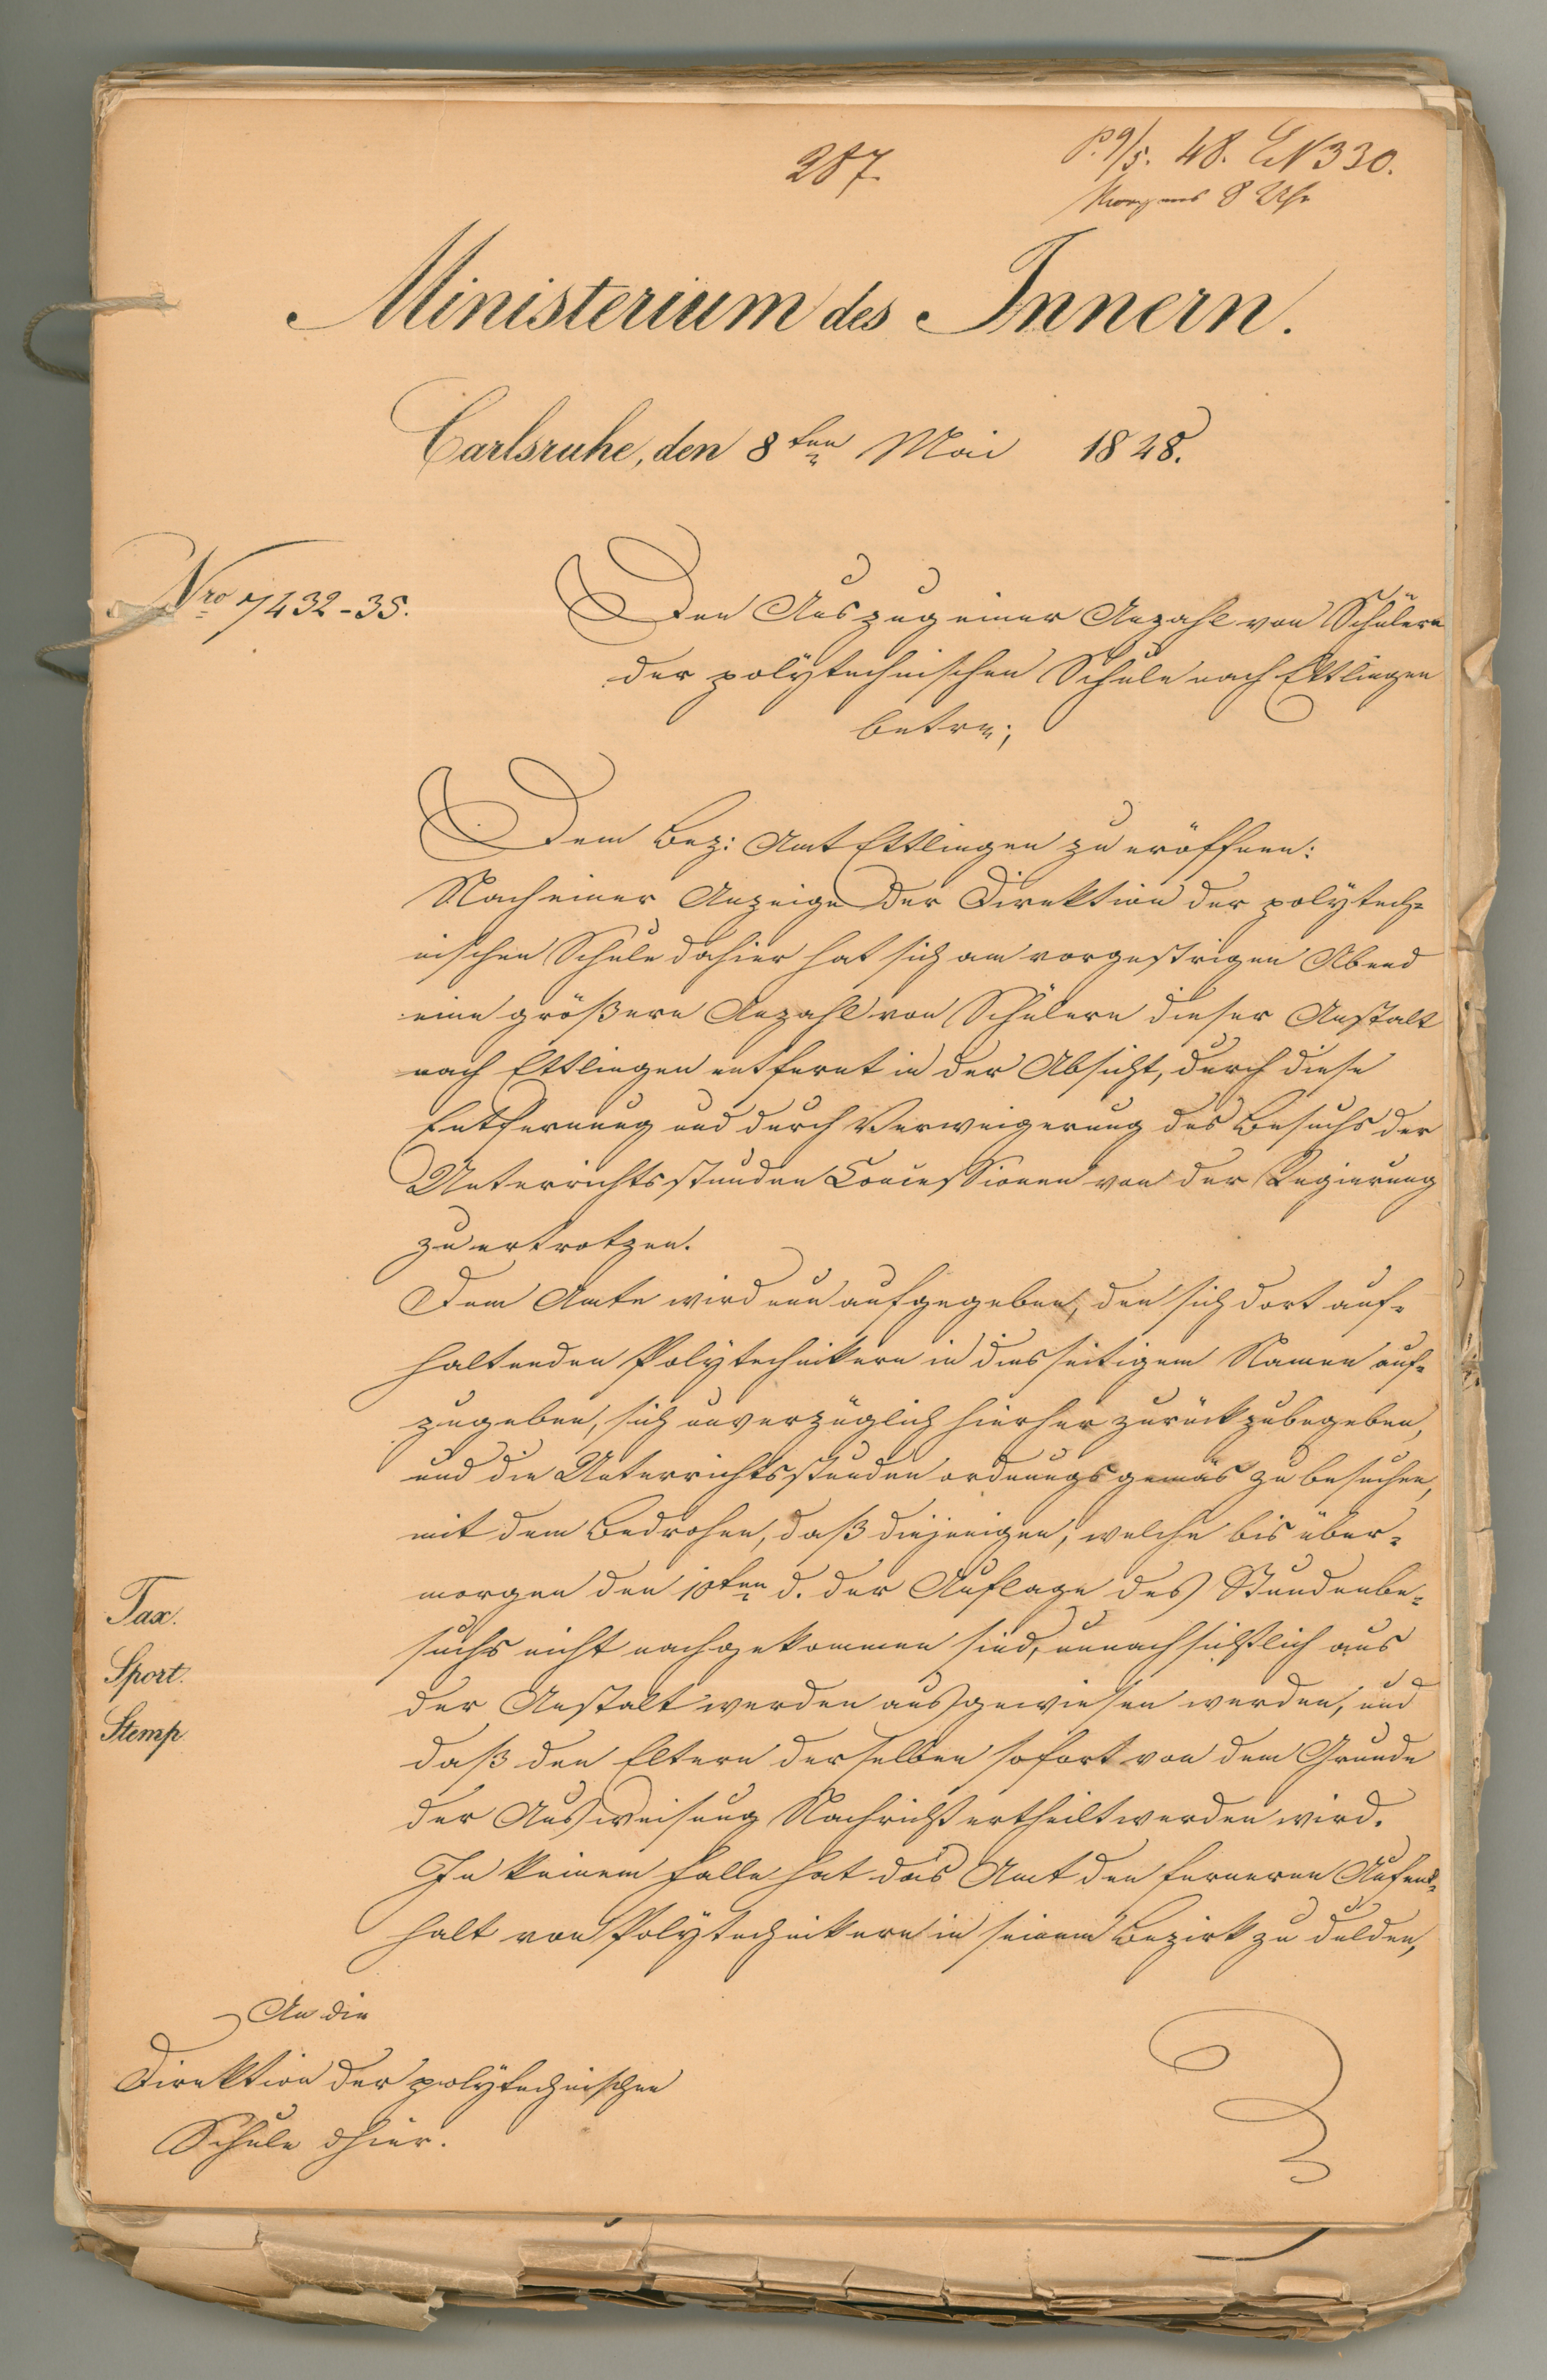 287.
P. 9/5. 48. EN 330.
Morgens 8 Uhr
Ministerium des Innern.
Carlsruhe, den 8ten Mai 1848.
Nro 7432-35.
Den Auszug einer Anzahl von Schülern
der polytechnischen Schule nach Ettlingen
betr.
Dem Bez: Amt Ettlingen zu eröffnen:
Nach einer Anzeige der Direktion der polytech-
nischen Schule dahier hat sich am vorgestrigen Abend
eine größere Anzahl von Schülern dieser Anstalt
nach Ettlingen entfernt in der Absicht, durch diese
Entfernung und durch Verweigerung des Besuchs der
Unterrichtsstunden Concessionen von der Regierung
zu ertrotzen.
Dem Amte wird nun aufgegeben, den sich dort auf-
haltenden Polytechnikern in diesseitigem Namen auf-
zugeben, sich unverzüglich hierher zurückzubegeben,
und die Unterrichtsstunden ordnungsgemäs zu besuchen,
mit dem Bedrohen, daß diejenigen, welche bis über-
morgen den 10ten d. der Auflage des Stundenbe-
suchs nicht nachgekommen sind, unnachsichtlich aus
der Anstalt werden ausgewiesen werden, und
daß den Eltern derselben sofort von dem Grunde
der Ausweisung Nachricht ertheilt werden wird.
In keinem Falle hat das Amt den ferneren Aufent-
halt von Polytechnikern in seinem Bezirk zu dulden,
Tax.
Sport.
Stemp.
An die
Direktion der polytechnischen
Schule dhier.